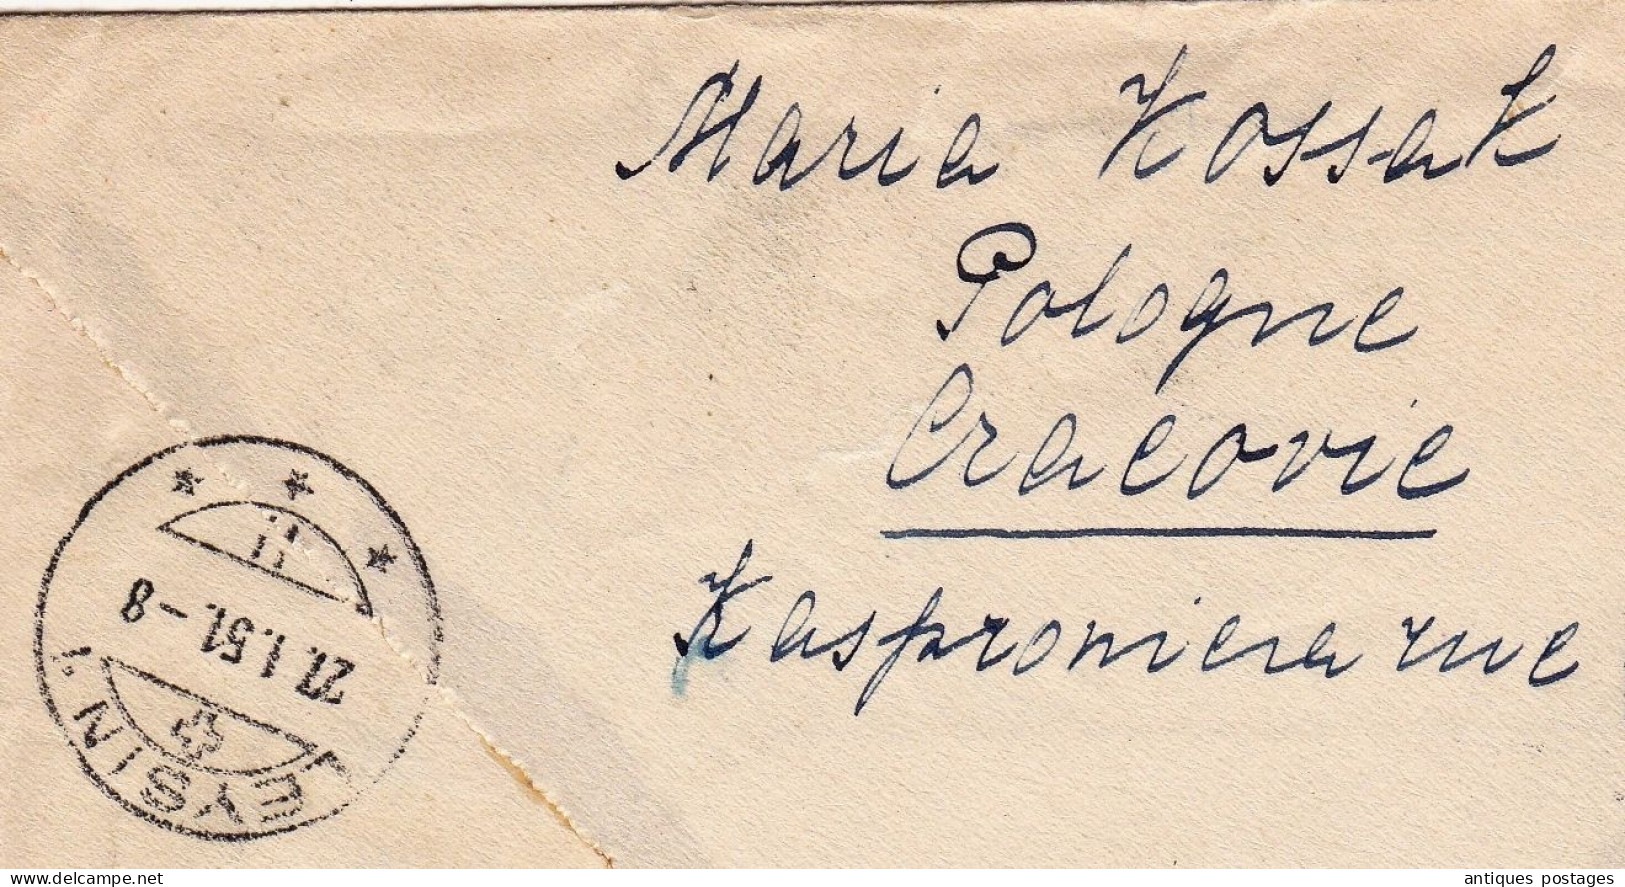 Maria Kossak
Pologne
Cracovie
Kasproniera rue
LEYSIN 1
27.1.51.-8
www.delcampe.net
antiques postages